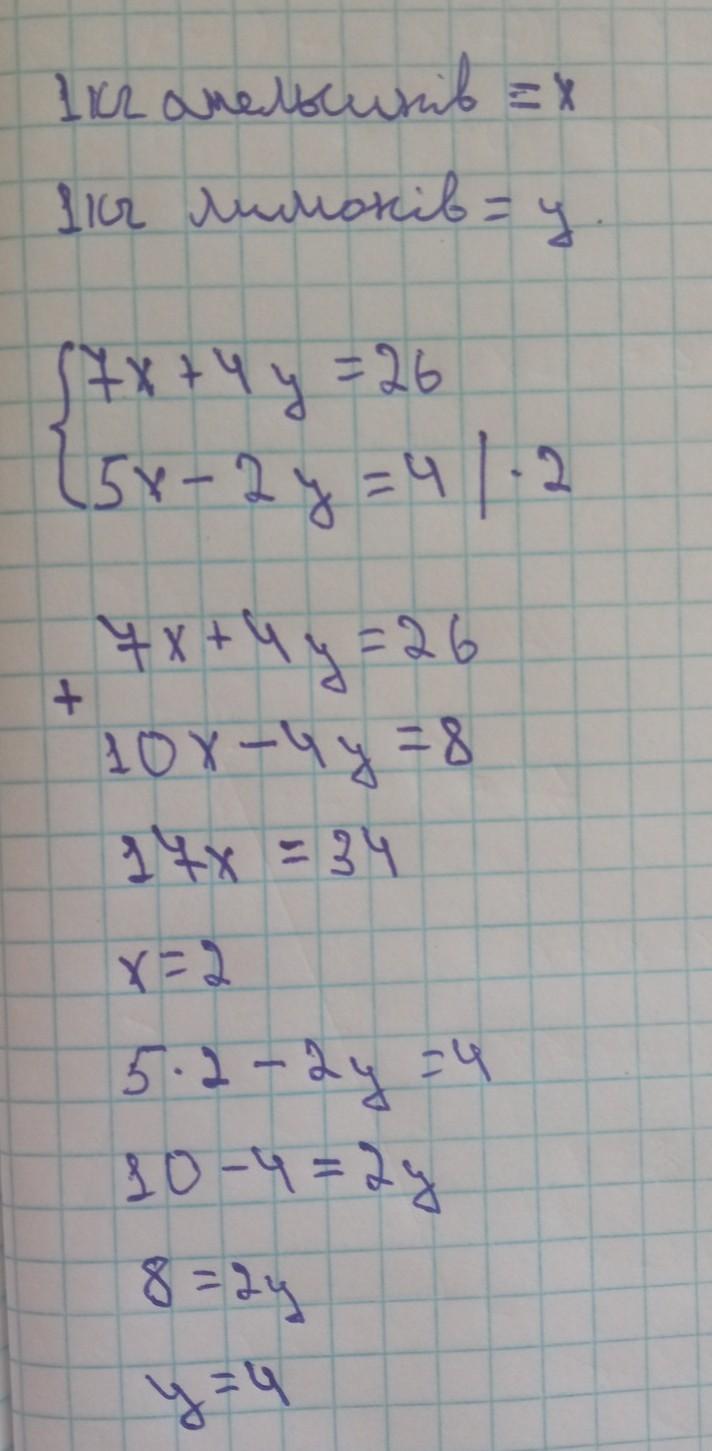 1кг апельсинів = x
1кг лимонів = y.
7x + 4y = 26
5x - 2y = 4 | · 2
7x + 4y = 26
+
10x - 4y = 8
17x = 34
x = 2
5 · 2 - 2y = 4
10 - 4 = 2y
8 = 2y
y = 4